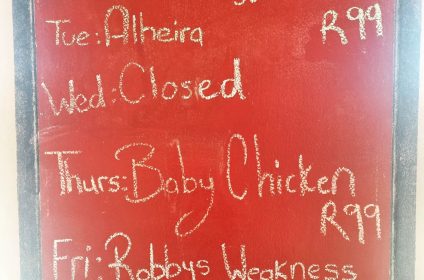 Tue: Alheira R99
Wed: Closed
Thurs: Baby Chicken
R99
Fri: Robbys Weakness